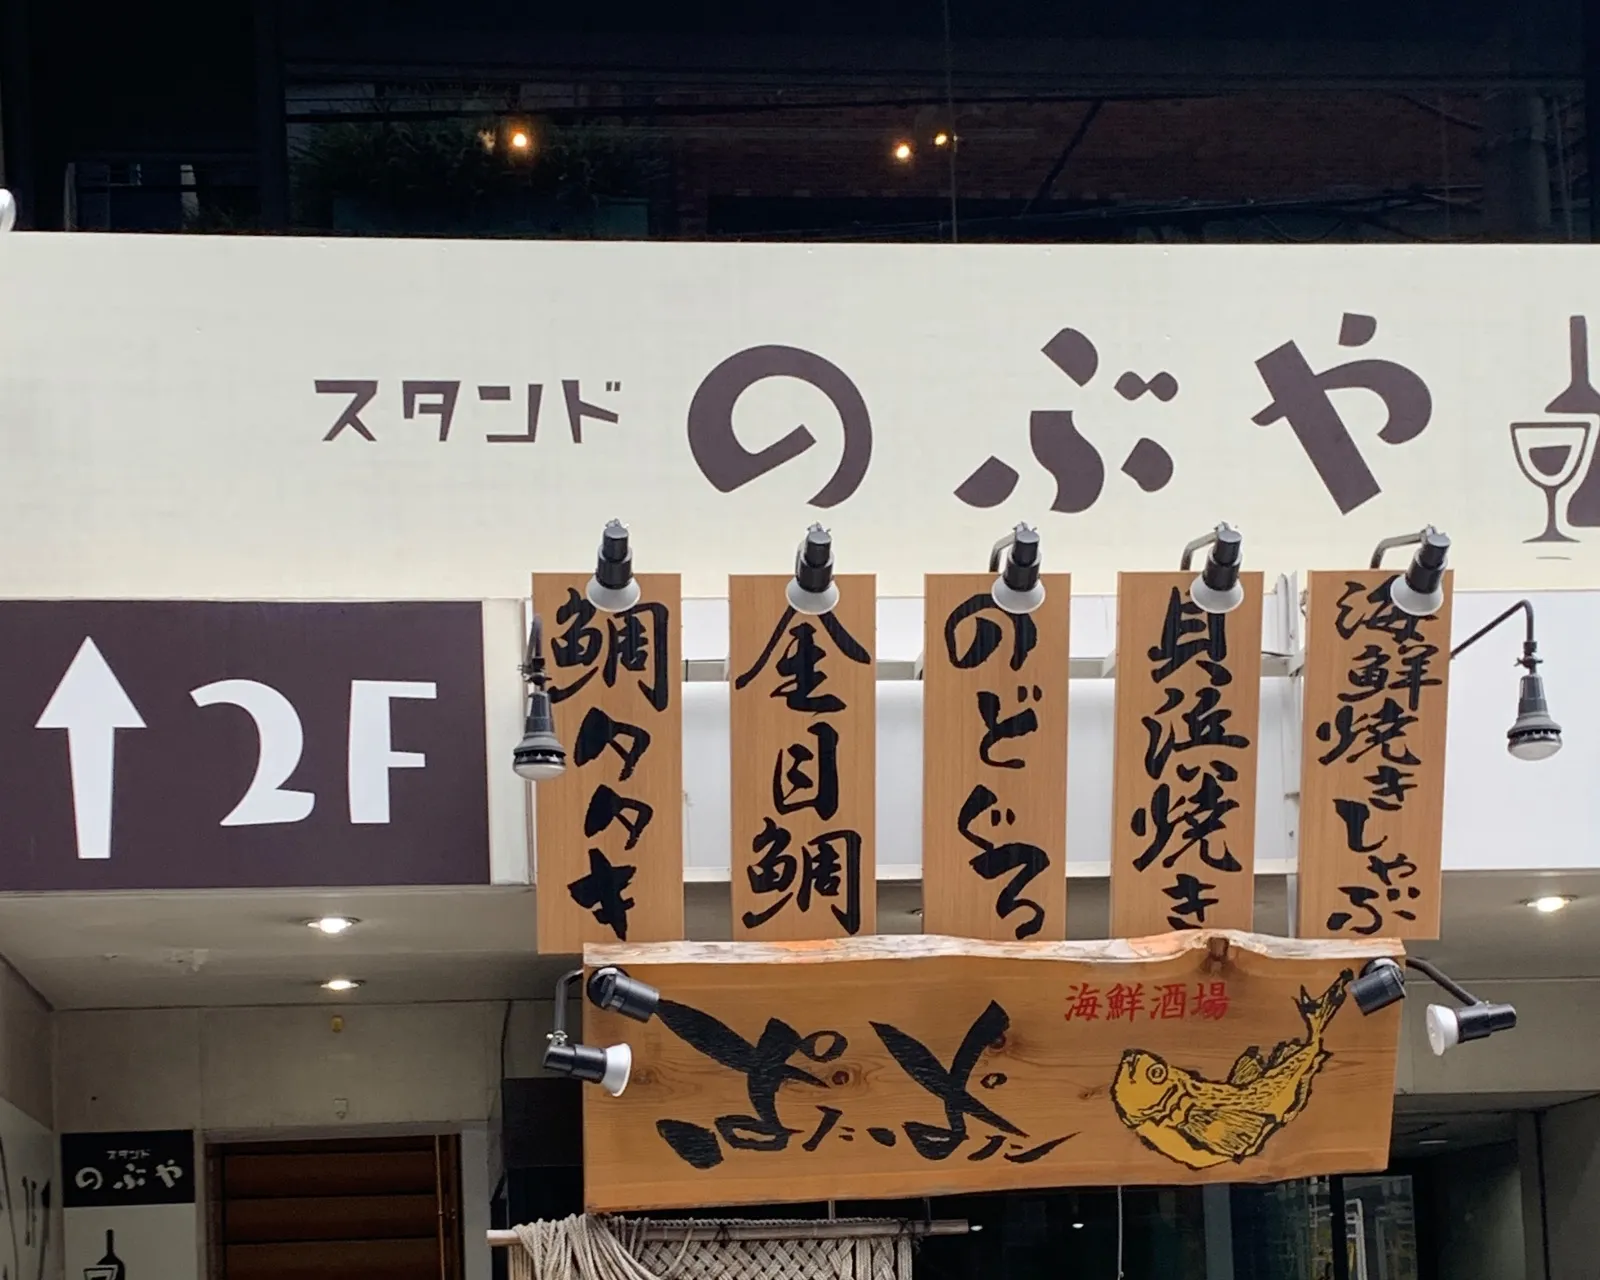 スタンド のぶや
2F
海鮮焼きしゃぶ
貝浜焼き
のどぐろ
金目鯛
鯛タタキ
海鮮酒場
スタンド
のぶや